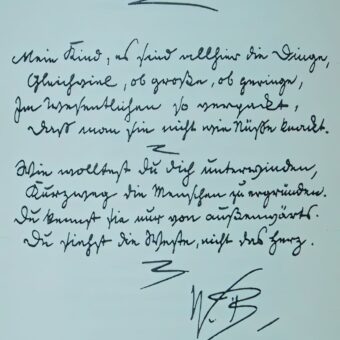 Mein Kind, es sind allhier die Dinge,
Gleichviel, ob große, ob geringe,
Im Wesentlichen so verpackt,
Daß man sie nicht wie Nüsse knackt.
Wie wolltest Du Dich unterwinden,
Kurzweg die Menschen zu ergründen.
Du kennst sie nur von außenwärts.
Du siehst die Weste, nicht das Herz.
W. B.